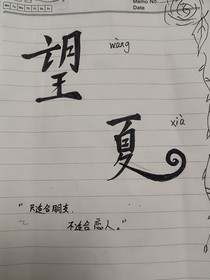 Memo No.
Date
望 wàng
夏 xià
"只适合朋友,
不适合恋人。"